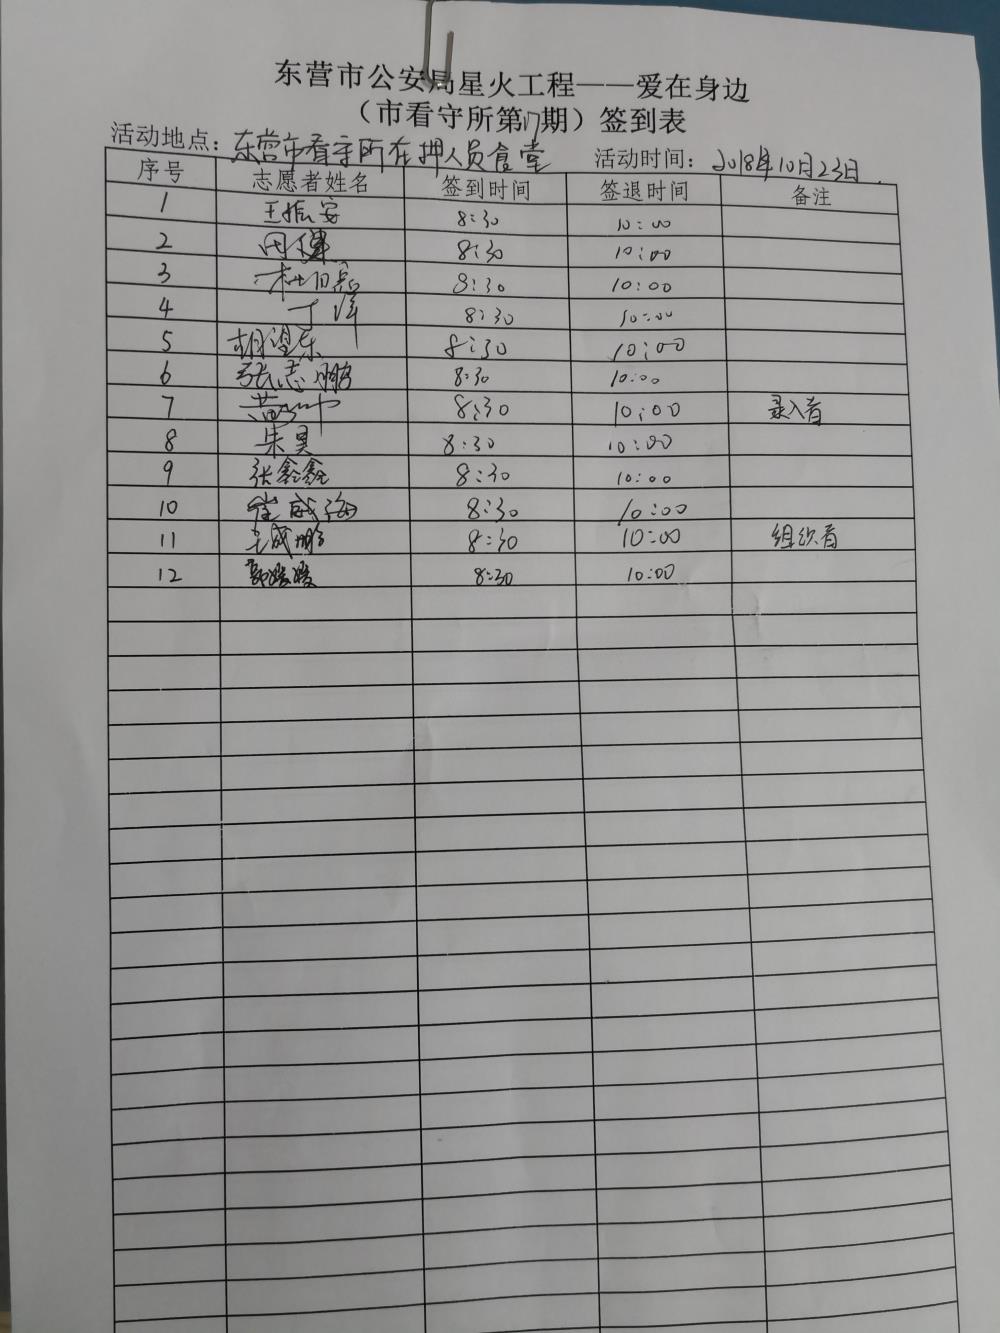 东营市公安局星火工程——爱在身边
（市看守所第17期）签到表
活动地点：东营市看守所在押人员食堂 活动时间：2018年10月23日.
序号 志愿者姓名 签到时间 签退时间 备注
1 王振安 8:30 10:00
2 田健 8:30 10:00
3 8:30 10:00
4 丁洋 8:30 10:00
5 胡望东 8:30 10:00
6 张志鹏 8:30 10:00
7 8:30 10:00 录入者
8 朱昊 8:30 10:00
9 张鑫鑫 8:30 10:00
10 崔威海 8:30 10:00
11 王成鹏 8:30 10:00 组织者
12 郭媛媛 8:30 10:00